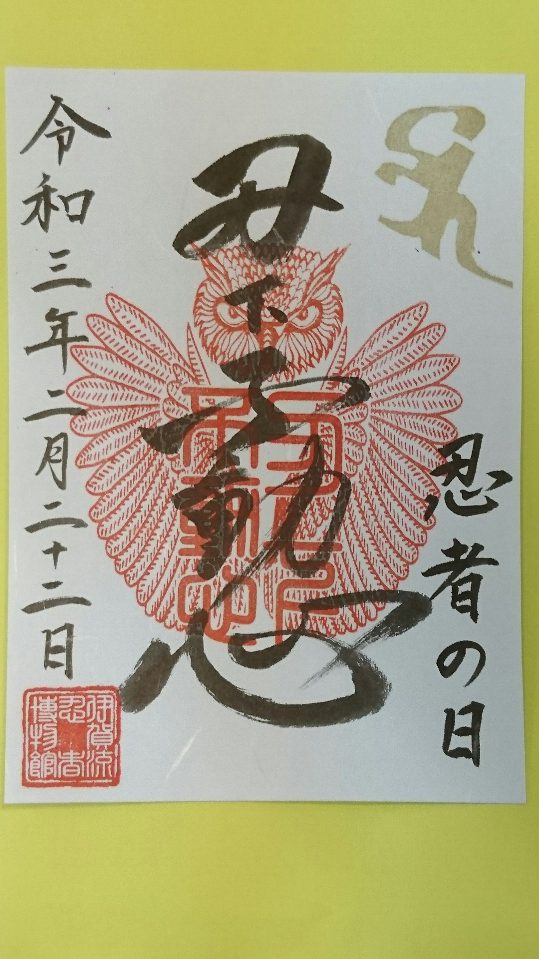 忍者の日
刃下不動心
令和三年二月二十二日
伊賀流
忍者
博物館